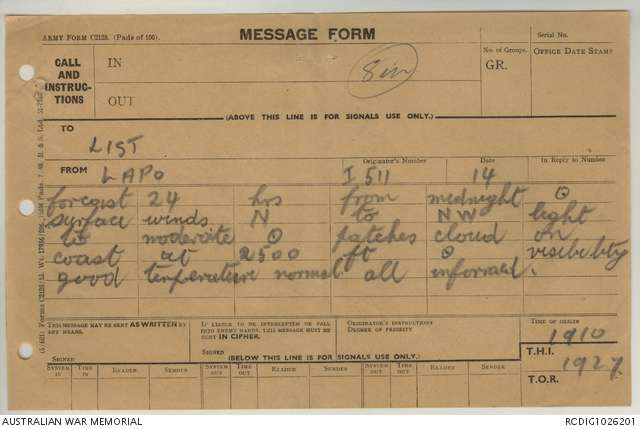 ARMY FORM C2128. (Pads of 100).
MESSAGE FORM
Serial No.
CALL
AND
INSTRUC-
TIONS
IN
OUT
8 in
No. of Groups.
GR.
OFFICE DATE STAMP
(ABOVE THIS LINE IS FOR SIGNALS USE ONLY.)
TO
LIST
FROM
LAPO
Originator's Number
I 511
Date
14
In Reply to Number
forcast 24 hrs from midnight ⊙
surface winds N to NW light
to moderate ⊙ patches cloud on
coast at 2500 ft ⊙ visibility
good temperature normal all informed.
THIS MESSAGE MAY BE SENT AS WRITTEN BY
ANY MEANS.
SIGNED
IF LIABLE TO BE INTERCEPTED OR FALL
INTO ENEMY HANDS, THIS MESSAGE MUST BE
SENT IN CIPHER.
SIGNED
ORIGINATOR'S INSTRUCTIONS
DEGREE OF PRIORITY
TIME OF ORIGIN
1910
(BELOW THIS LINE IS FOR SIGNALS USE ONLY.)
T.H.I.
1927
T.O.R.
SYSTEM IN
TIME IN
READER
SENDER
SYSTEM OUT
TIME OUT
READER
SENDER
SYSTEM OUT
TIME OUT
READER
SENDER
AUSTRALIAN WAR MEMORIAL
RCDIG1026201